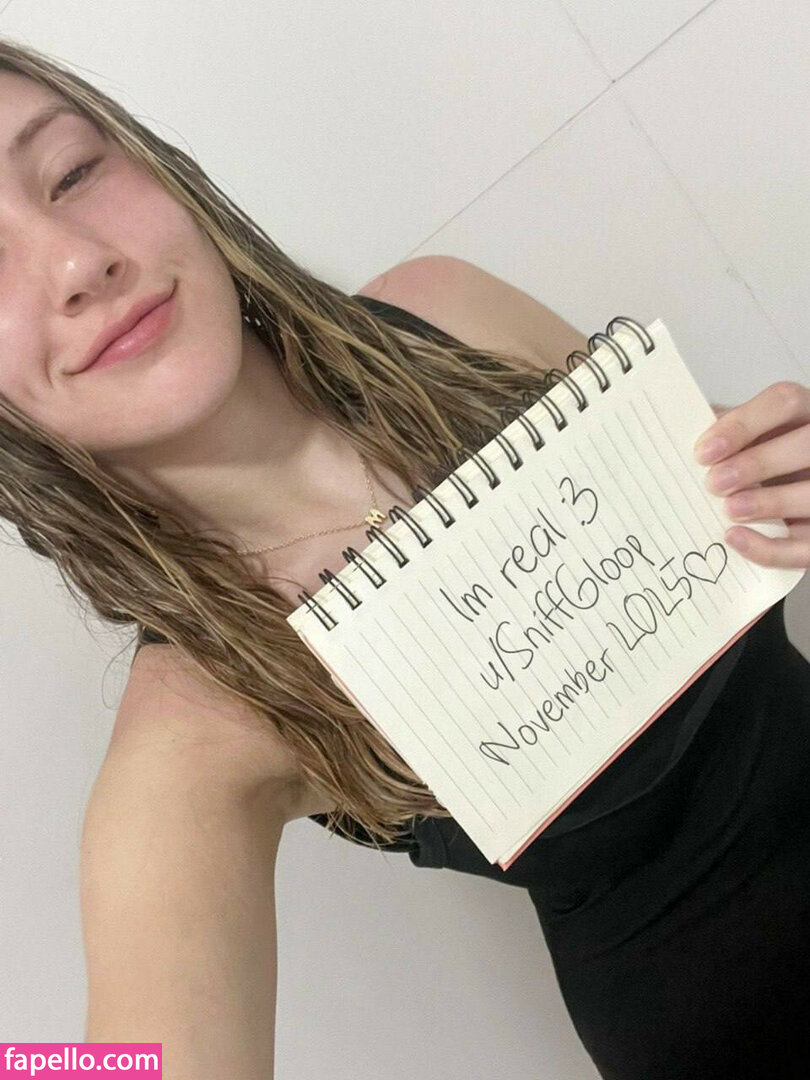 Im real :3
u/SniffGloop
November 2025♡
M
fapello.com